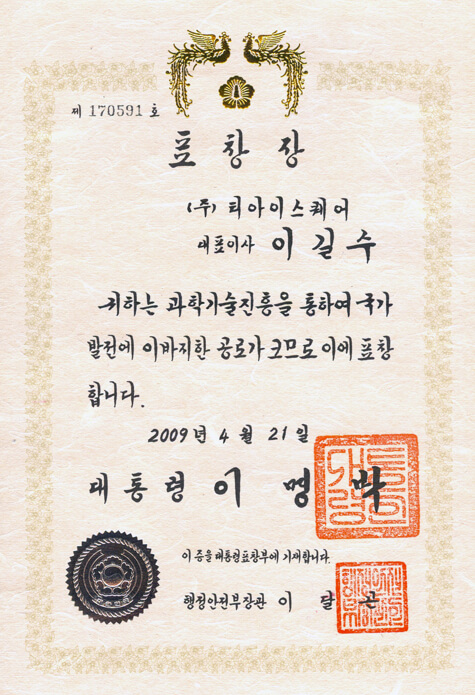 제 170591 호
표 창 장
(주) 티아이스퀘어
대표이사 이 길 수
귀하는 과학기술진흥을 통하여 국가
발전에 이바지한 공로가 크므로 이에 표창
합니다.
2009 년 4 월 21 일
대통령 이 명 박
이 증을 대통령표창부에 기재합니다.
행정안전부장관 이 달 곤